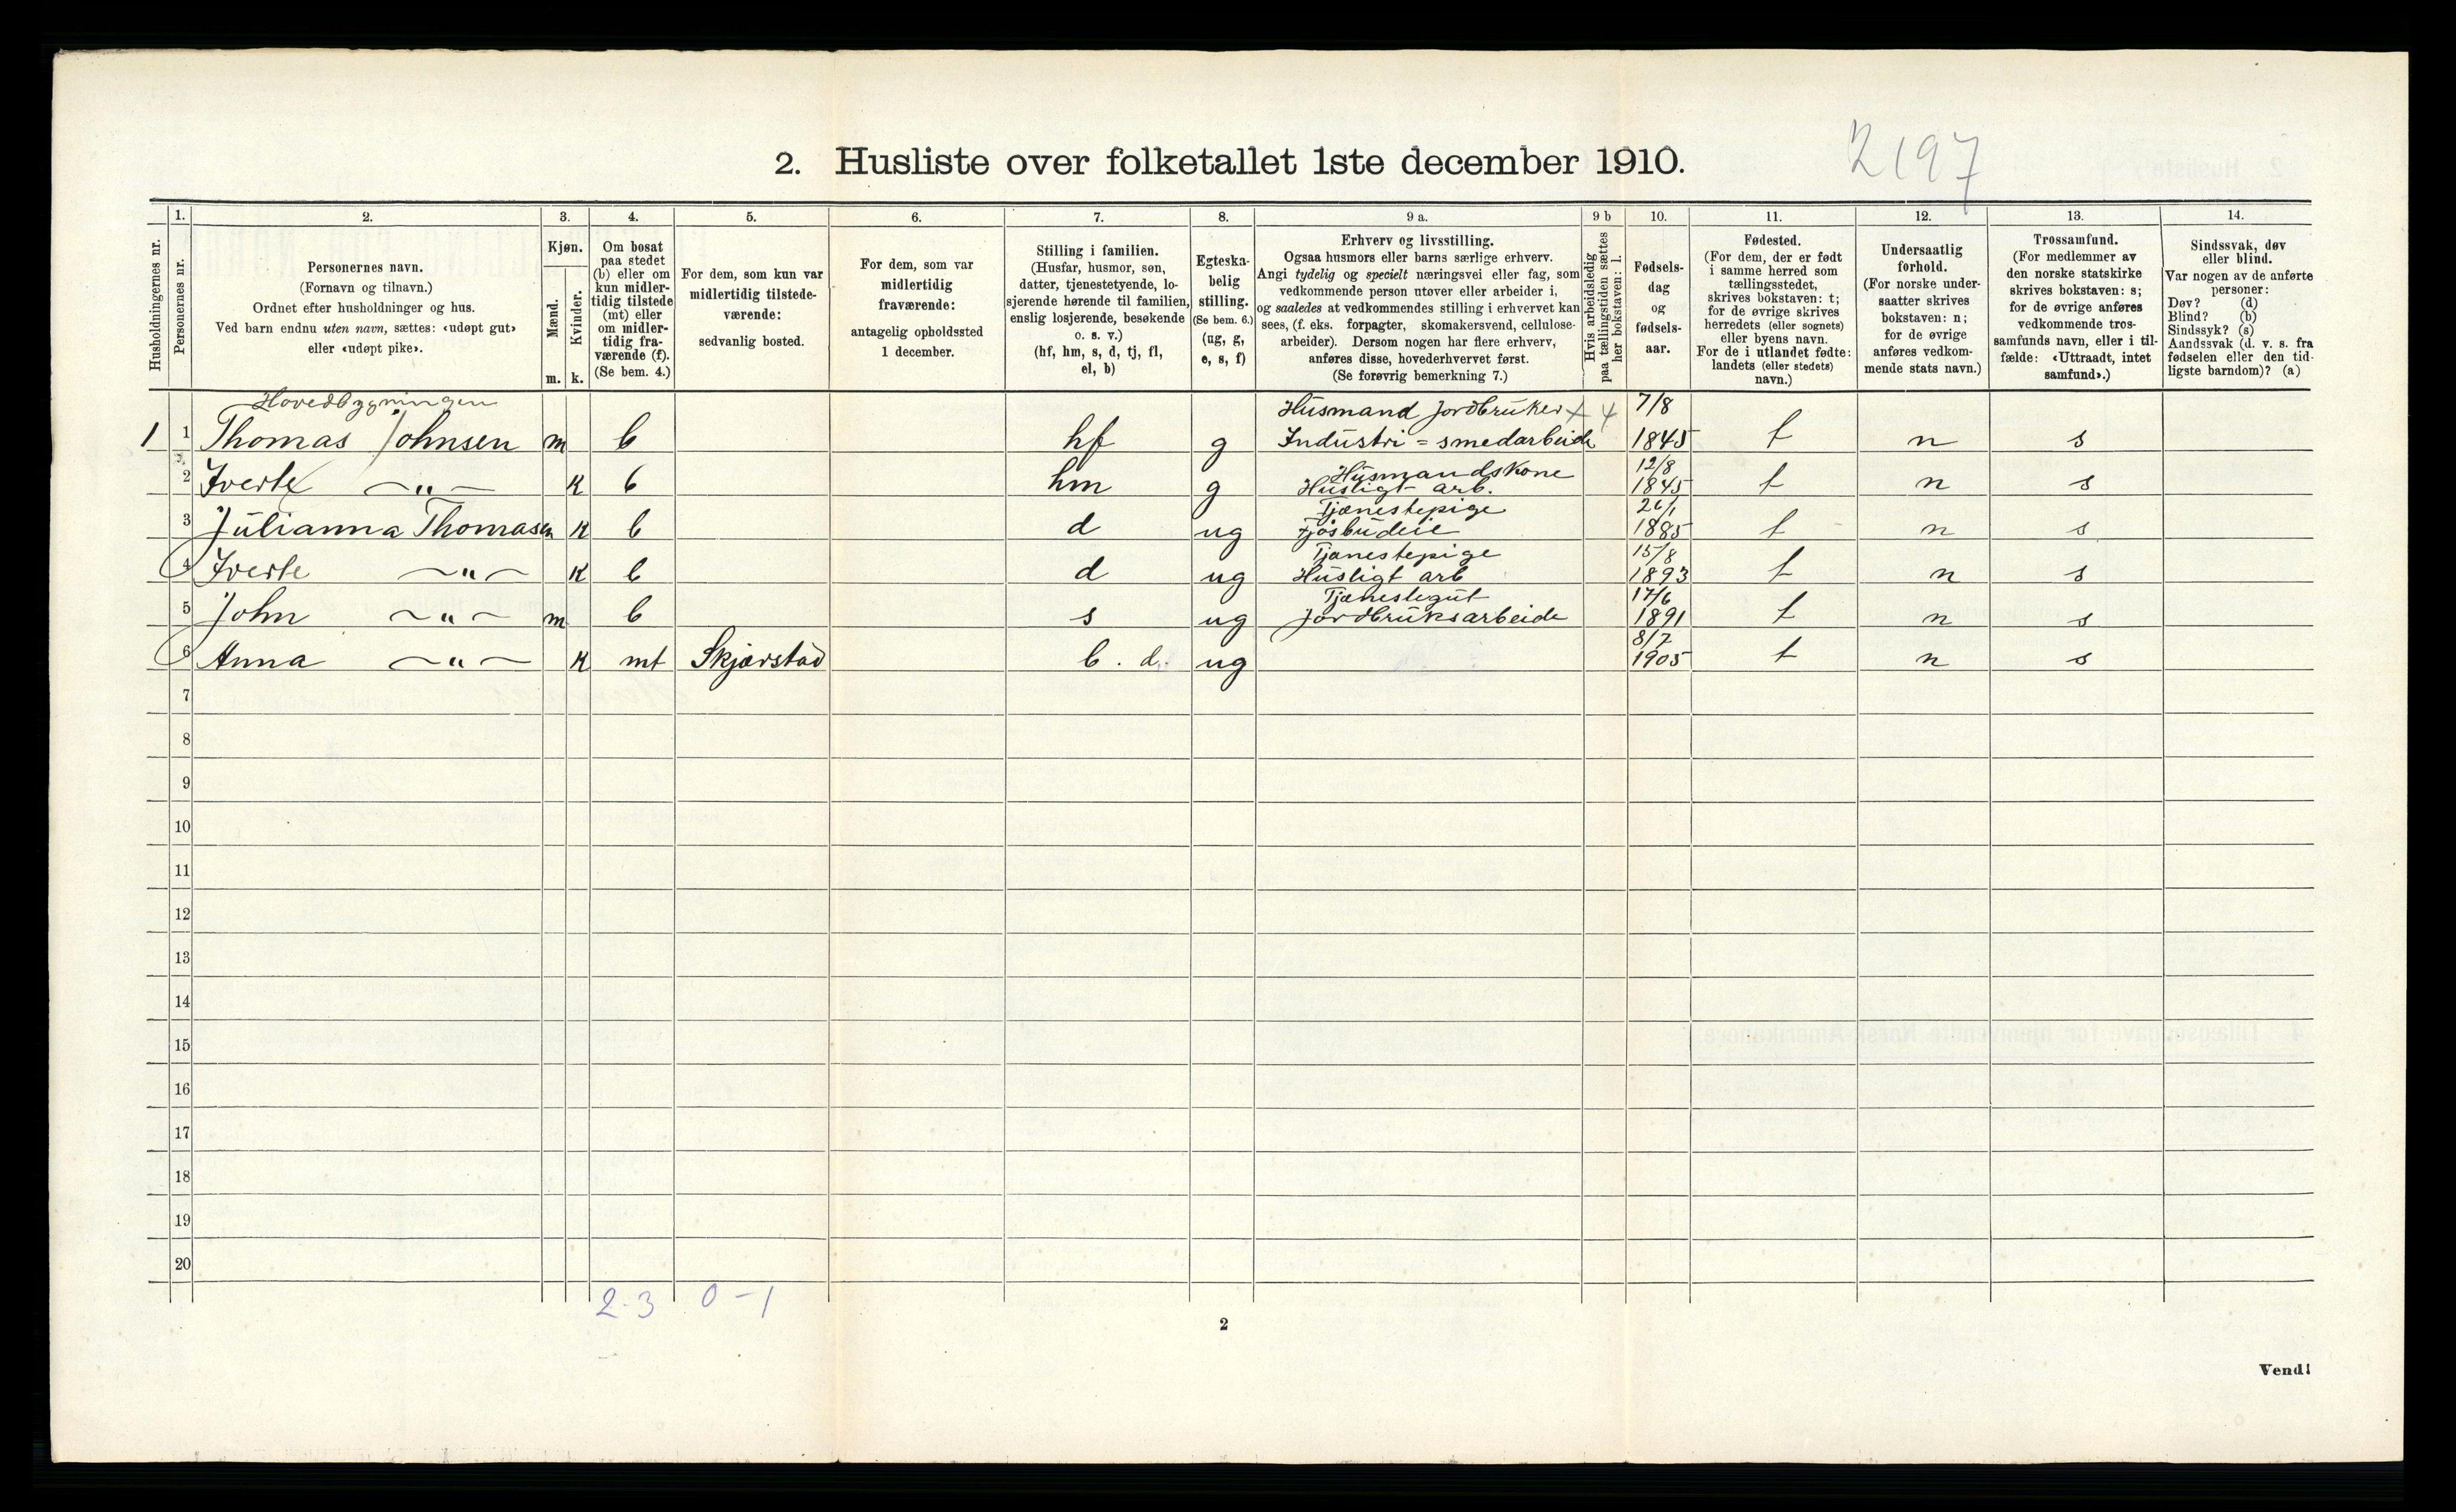 2. Husliste over folketallet 1ste december 1910.
2197
1. 2. 3. 4. 5. 6. 7. 8. 9 a. 9 b 10. 11. 12. 13. 14.
Husholdningernes nr.
Personernes nr.
Personernes navn.
(Fornavn og tilnavn.)
Ordnet efter husholdninger og hus.
Ved barn endnu uten navn, sættes: «udøpt gut»
eller «udøpt pike».
Kjøn.
Mænd.
Kvinder.
m. k.
Om bosat
paa stedet
(b) eller om
kun midler-
tidig tilstede
(mt) eller
om midler-
tidig fra-
værende (f).
(Se bem. 4.)
For dem, som kun var
midlertidig tilstede-
værende:
sedvanlig bosted.
For dem, som var
midlertidig
fraværende:
antagelig opholdssted
1 december.
Stilling i familien.
(Husfar, husmor, søn,
datter, tjenestetyende, lo-
sjerende hørende til familien,
enslig losjerende, besøkende
o. s. v.)
(hf, hm, s, d, tj, fl,
el, b)
Egteska-
belig
stilling.
(Se bem. 6.)
(ug, g,
e, s, f)
Erhverv og livsstilling.
Ogsaa husmors eller barns særlige erhverv.
Angi tydelig og specielt næringsvei eller fag, som
vedkommende person utøver eller arbeider i,
og saaledes at vedkommendes stilling i erhvervet kan
sees, (f. eks. forpagter, skomakersvend, cellulose-
arbeider). Dersom nogen har flere erhverv,
anføres disse, hovederhvervet først.
(Se forøvrig bemerkning 7.)
Hvis arbeidsledig
paa tællingstiden sættes
her bokstaven: l.
Fødsels-
dag
og
fødsels-
aar.
Fødested.
(For dem, der er født
i samme herred som
tællingsstedet,
skrives bokstaven: t;
for de øvrige skrives
herredets (eller sognets)
eller byens navn.
For de i utlandet fødte:
landets (eller stedets)
navn.)
Undersaatlig
forhold.
(For norske under-
saatter skrives
bokstaven: n;
for de øvrige
anføres vedkom-
mende stats navn.)
Trossamfund.
(For medlemmer av
den norske statskirke
skrives bokstaven: s;
for de øvrige anføres
vedkommende tros-
samfunds navn, eller i til-
fælde: «Uttraadt, intet
samfund».)
Sindssvak, døv
eller blind.
Var nogen av de anførte
personer:
Døv? (d)
Blind? (b)
Sindssyk? (s)
Aandssvak (d. v. s. fra
fødselen eller den tid-
ligste barndom)? (a)
Hovedbygningen Husmand Jordbruker 7/8
1 1 Thomas Johnsen m b hf g Industri = smedarbeide 1845 t n s
Husmandskone 12/8
2 Iverte —"— k b hm g Husligt arb. 1845 t n s
Tjænestepige 26/1
3 Julianna Thomasen k b d ug Fjøsbudeie 1885 t n s
Tjænestepige 15/8
4 Iverte —"— k b d ug Husligt arb 1893 t n s
Tjænestegut 17/6
5 John —"— m b s ug Jordbruksarbeide 1891 t n s
8/7
6 Anna —"— k mt Skjærstad b. d. ug 1905 t n s
7
8
9
10
11
12
13
14
15
16
17
18
19
20
2-3 0-1
2
Vend!